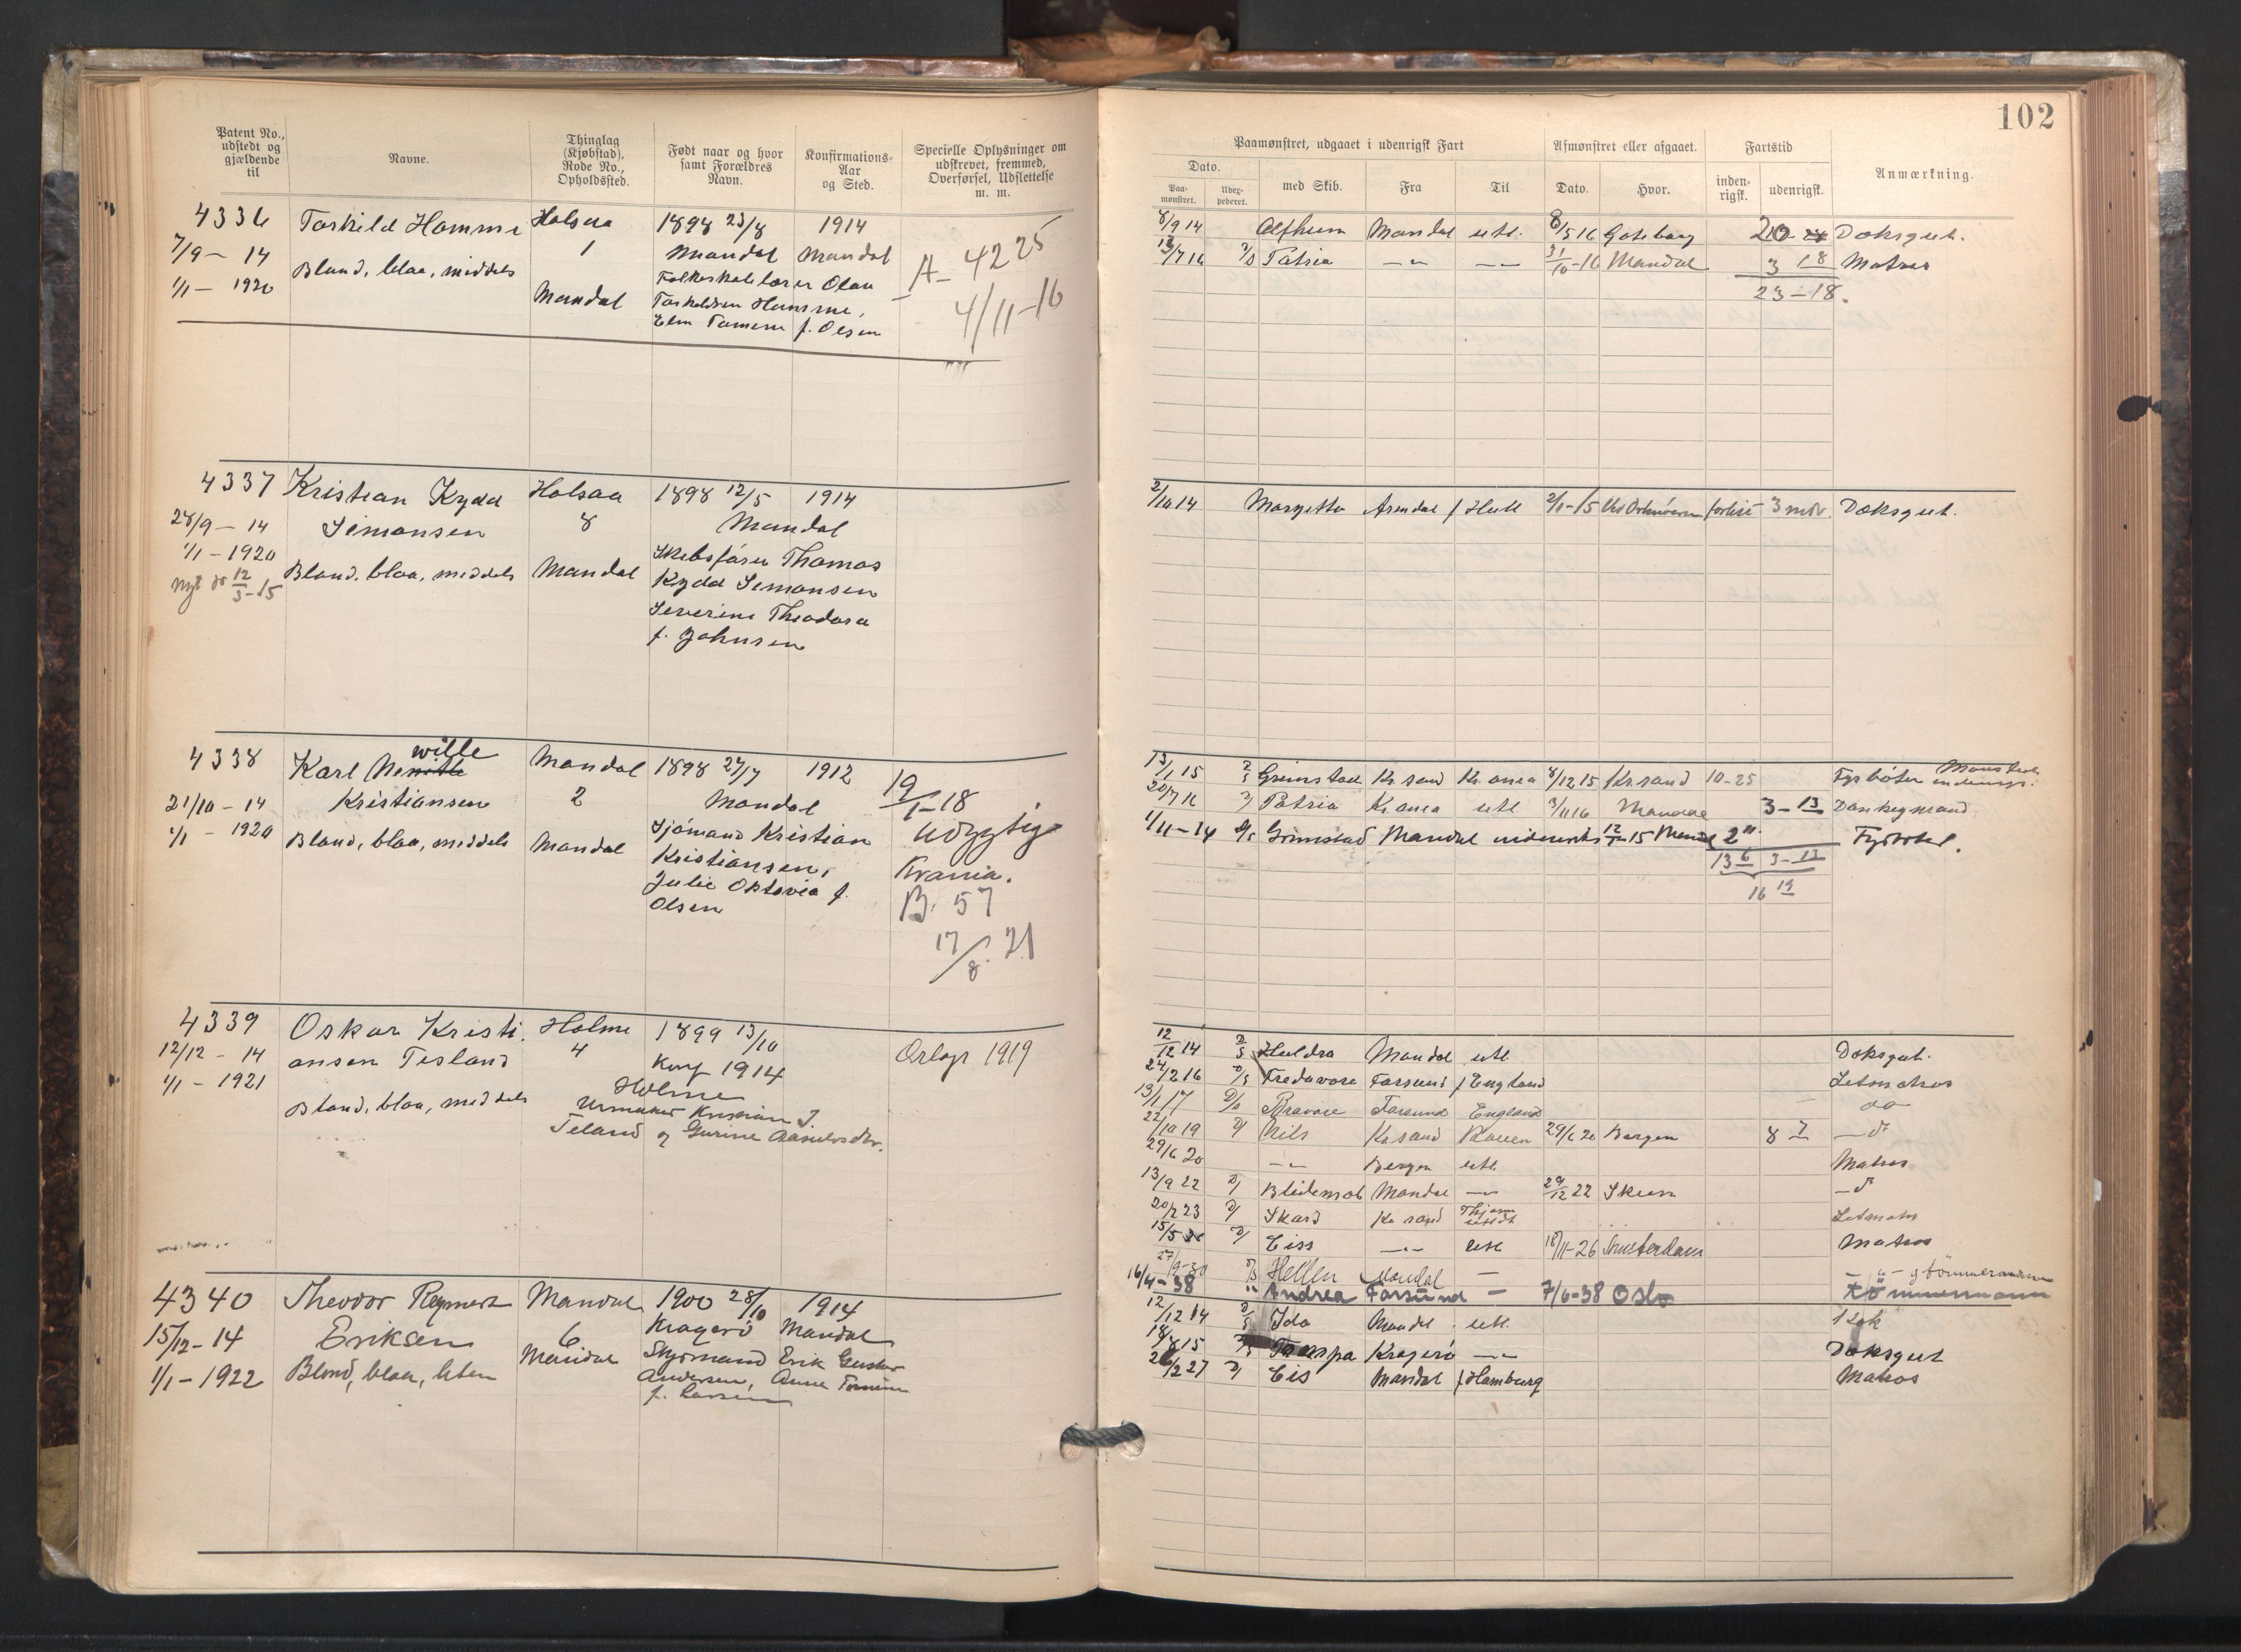 102
Patent No., udstedt og gjældende til
Navne.
Thinglag (Kjøbstad), Rode No., Opholdssted.
Født naar og hvor samt Forældres Navn.
Konfirmations-Aar og Sted.
Specielle Oplysninger om udskrevet, fremmed, Overførsel, Udslettelse m. m.
4336 Torkild Homme Halsaa 1898 23/8 1914
7/9 - 14 1 Mandal Mandal A - 4225
Blond, blaa, middels
1/1 - 1920 Mandal Folkeskolelærer Olau 4/11-16
Torkeldsen Homme,
f. Olsen
4337 Kristian Kydd Halsaa 1898 12/5 1914
28/9 - 14 Simonsen 8 Mandal
1/1 - 1920 Skibsfører Thomas
Nyt 12/3-15 Blond, blaa, middels Mandal Kydd Simonsen
Severine Theodora
f. Johnsen
wille
4338 Karl Kristiansen Mandal 1898 27/7 1912 19/1-18
21/10 - 14 2 Mandal udygtig
1/1 - 1920 Blond, blaa, middels Mandal Sjømand Kristian
Kristiansen, Krania.
Julie Oktavia f. B. 57
Olsen 17/8. 21
4339 Oskar Kristi- Holme 1899 13/10
12/12 - 14 ansen Tisland 4 Konf 1914 Orlogs 1919
1/1 - 1921 Holme
Blond, blaa, middels Urmaker Kristian T.
4340 Theodor Reymert Mandal 1900 28/10 1914
15/12 - 14 Eriksen 6 Kragerø Mandal
1/1 - 1922 Blond, blaa, liten Mandal Styrmand Erik Gustav
Andersen, Anne
f. Larsen
Paamønstret, udgaaet i udenrigsk Fart
Afmønstret eller afgaaet.
Fartstid
Anmærkning.
Dato.
Paa-mønstret.
med Skib. Fra Til Dato. Hvor. inden-rigsk. udenrigsk.
8/9 14 Alfheim Mandal utl. 8/5 16 Gøteborg Dæksgut.
13/7 16 Patria -"- -"- 31/10-16 Mandal 3 18 Matros
23-18.
2/10 14 Margetta Arendal f Hull 2/1-15 forlist 3 mdr. Dæksgut.
13/1 15 Grimstad Kr.sand Kr.ania 8/12 15 Kr.sand 10-25 Fyrbøter
20/7 16 Patria Kr.ania utl 3/11 16 Mandal 3-13 Donkeymand
1/11-14 Grimstad Mandal indenriks 12/1-15 Mandal 2" Fyrbøter.
13 6 3-13
16 19
12/12 14 Huldra Mandal utl Dæksgut.
24/2 16 Fredavore Farsund f England Letmatros
13/1 17 Bravore Farsund England do
22/10 19 Nils Kr.sand Rouen 29/6 20 Bergen 8 7 -d-
29/6 20 -"- Bergen utl Matros
13/9 22 Blidensol Mandal -"- 29/12 22 Skien -d-
20/2 23 Skard Kr.sand Letmatr
15/5 Eiss -"- utl 18/11-26 Amsterdam Matros
27/9-30 Hellen Mandal - -"- g tømmermann
16/4-38 Andrea Farsund - 7/6-38 Oslo tømmermann
12/12 14 Ida Mandal utl.
18/8 15 Kragerø -"- Dæksgut
26/2 27 Eis Mandal f Hamburg Matros